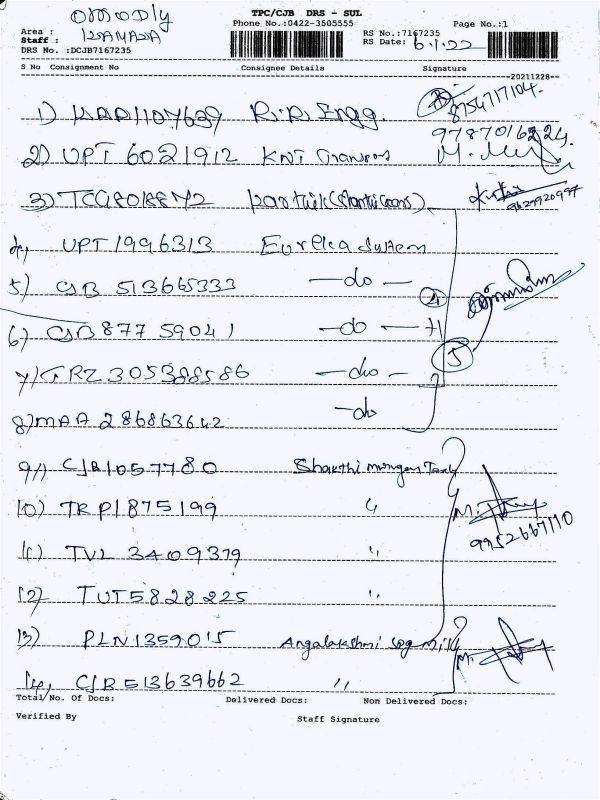 TPC/CJB DRS - SUL
Phone No.:0422-3505555 Page No.:1
Area :
Staff :
DRS No. :DCJB7167235
RS No.:7167235
RS Date: 6/1/22
S No Consignment No Consignee Details Signature
20211228
8754717104
1) MAA1107639 R.R. Engg.
9787016224
2) UPT 6021912 KNT Transpos
3) TCG8018872
9629920997
4) UPT 1996313 Eureka System
5) CJB 513665333 -do-
4
6) CJB 877 59041 -do-
5
7) TRZ 305388586 -do-
8) MAA 286863642 -do
9) CJB1057780 Shakthi murugan Tex
10) TRP1875199 "
9952667110
11) TVL 34109379 "
12) TUT5828225 "
13) PLN1359015 Angalakshmi spg mill
14, CJB513639662 "
Total/No. Of Docs: Delivered Docs: Non Delivered Docs:
Verified By Staff Signature